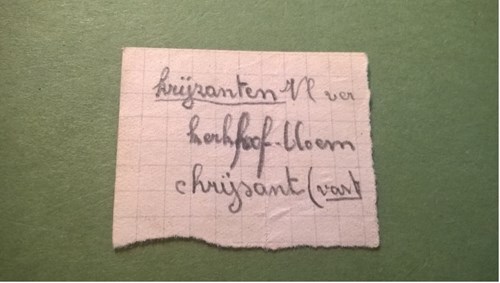 krijzanten Vl ver
kerkhof-bloem
chrijsant (vast